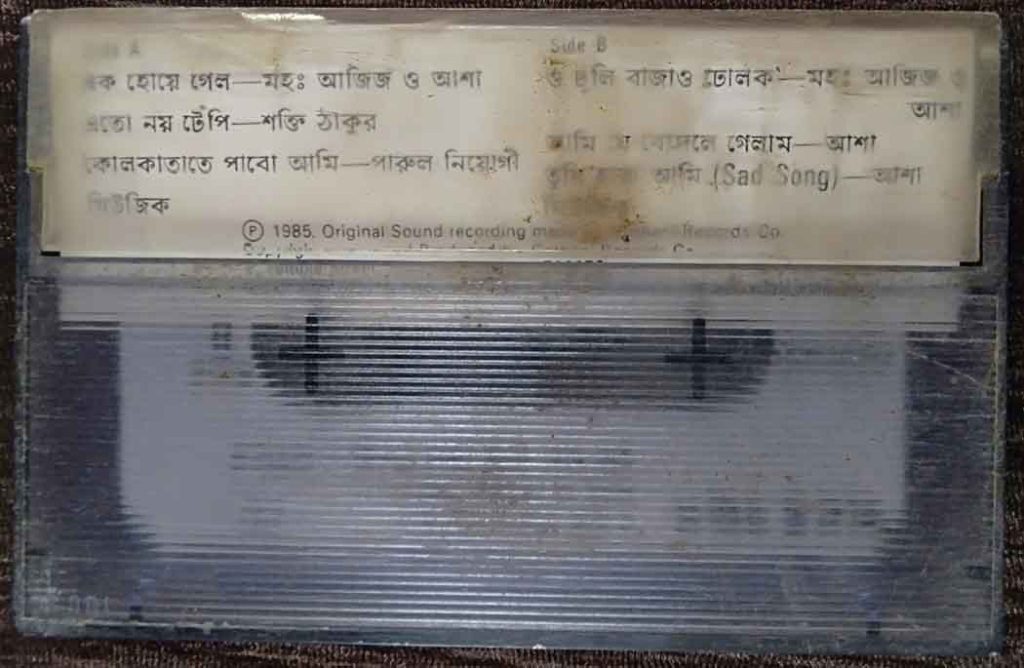 Side A
এক হোয়ে গেল—মহঃ আজিজ ও আশা
এতো নয় টেঁপি—শক্তি ঠাকুর
কোলকাতাতে পাবো আমি—পারুল নিয়োগী
মিউজিক
Side B
ও ঢুলি বাজাও ঢোলক—মহঃ আজিজ ও
আশা
আমি গেলাম—আশা
আমি (Sad Song)—আশা
Ⓟ 1985. Original Sound recording Records Co.